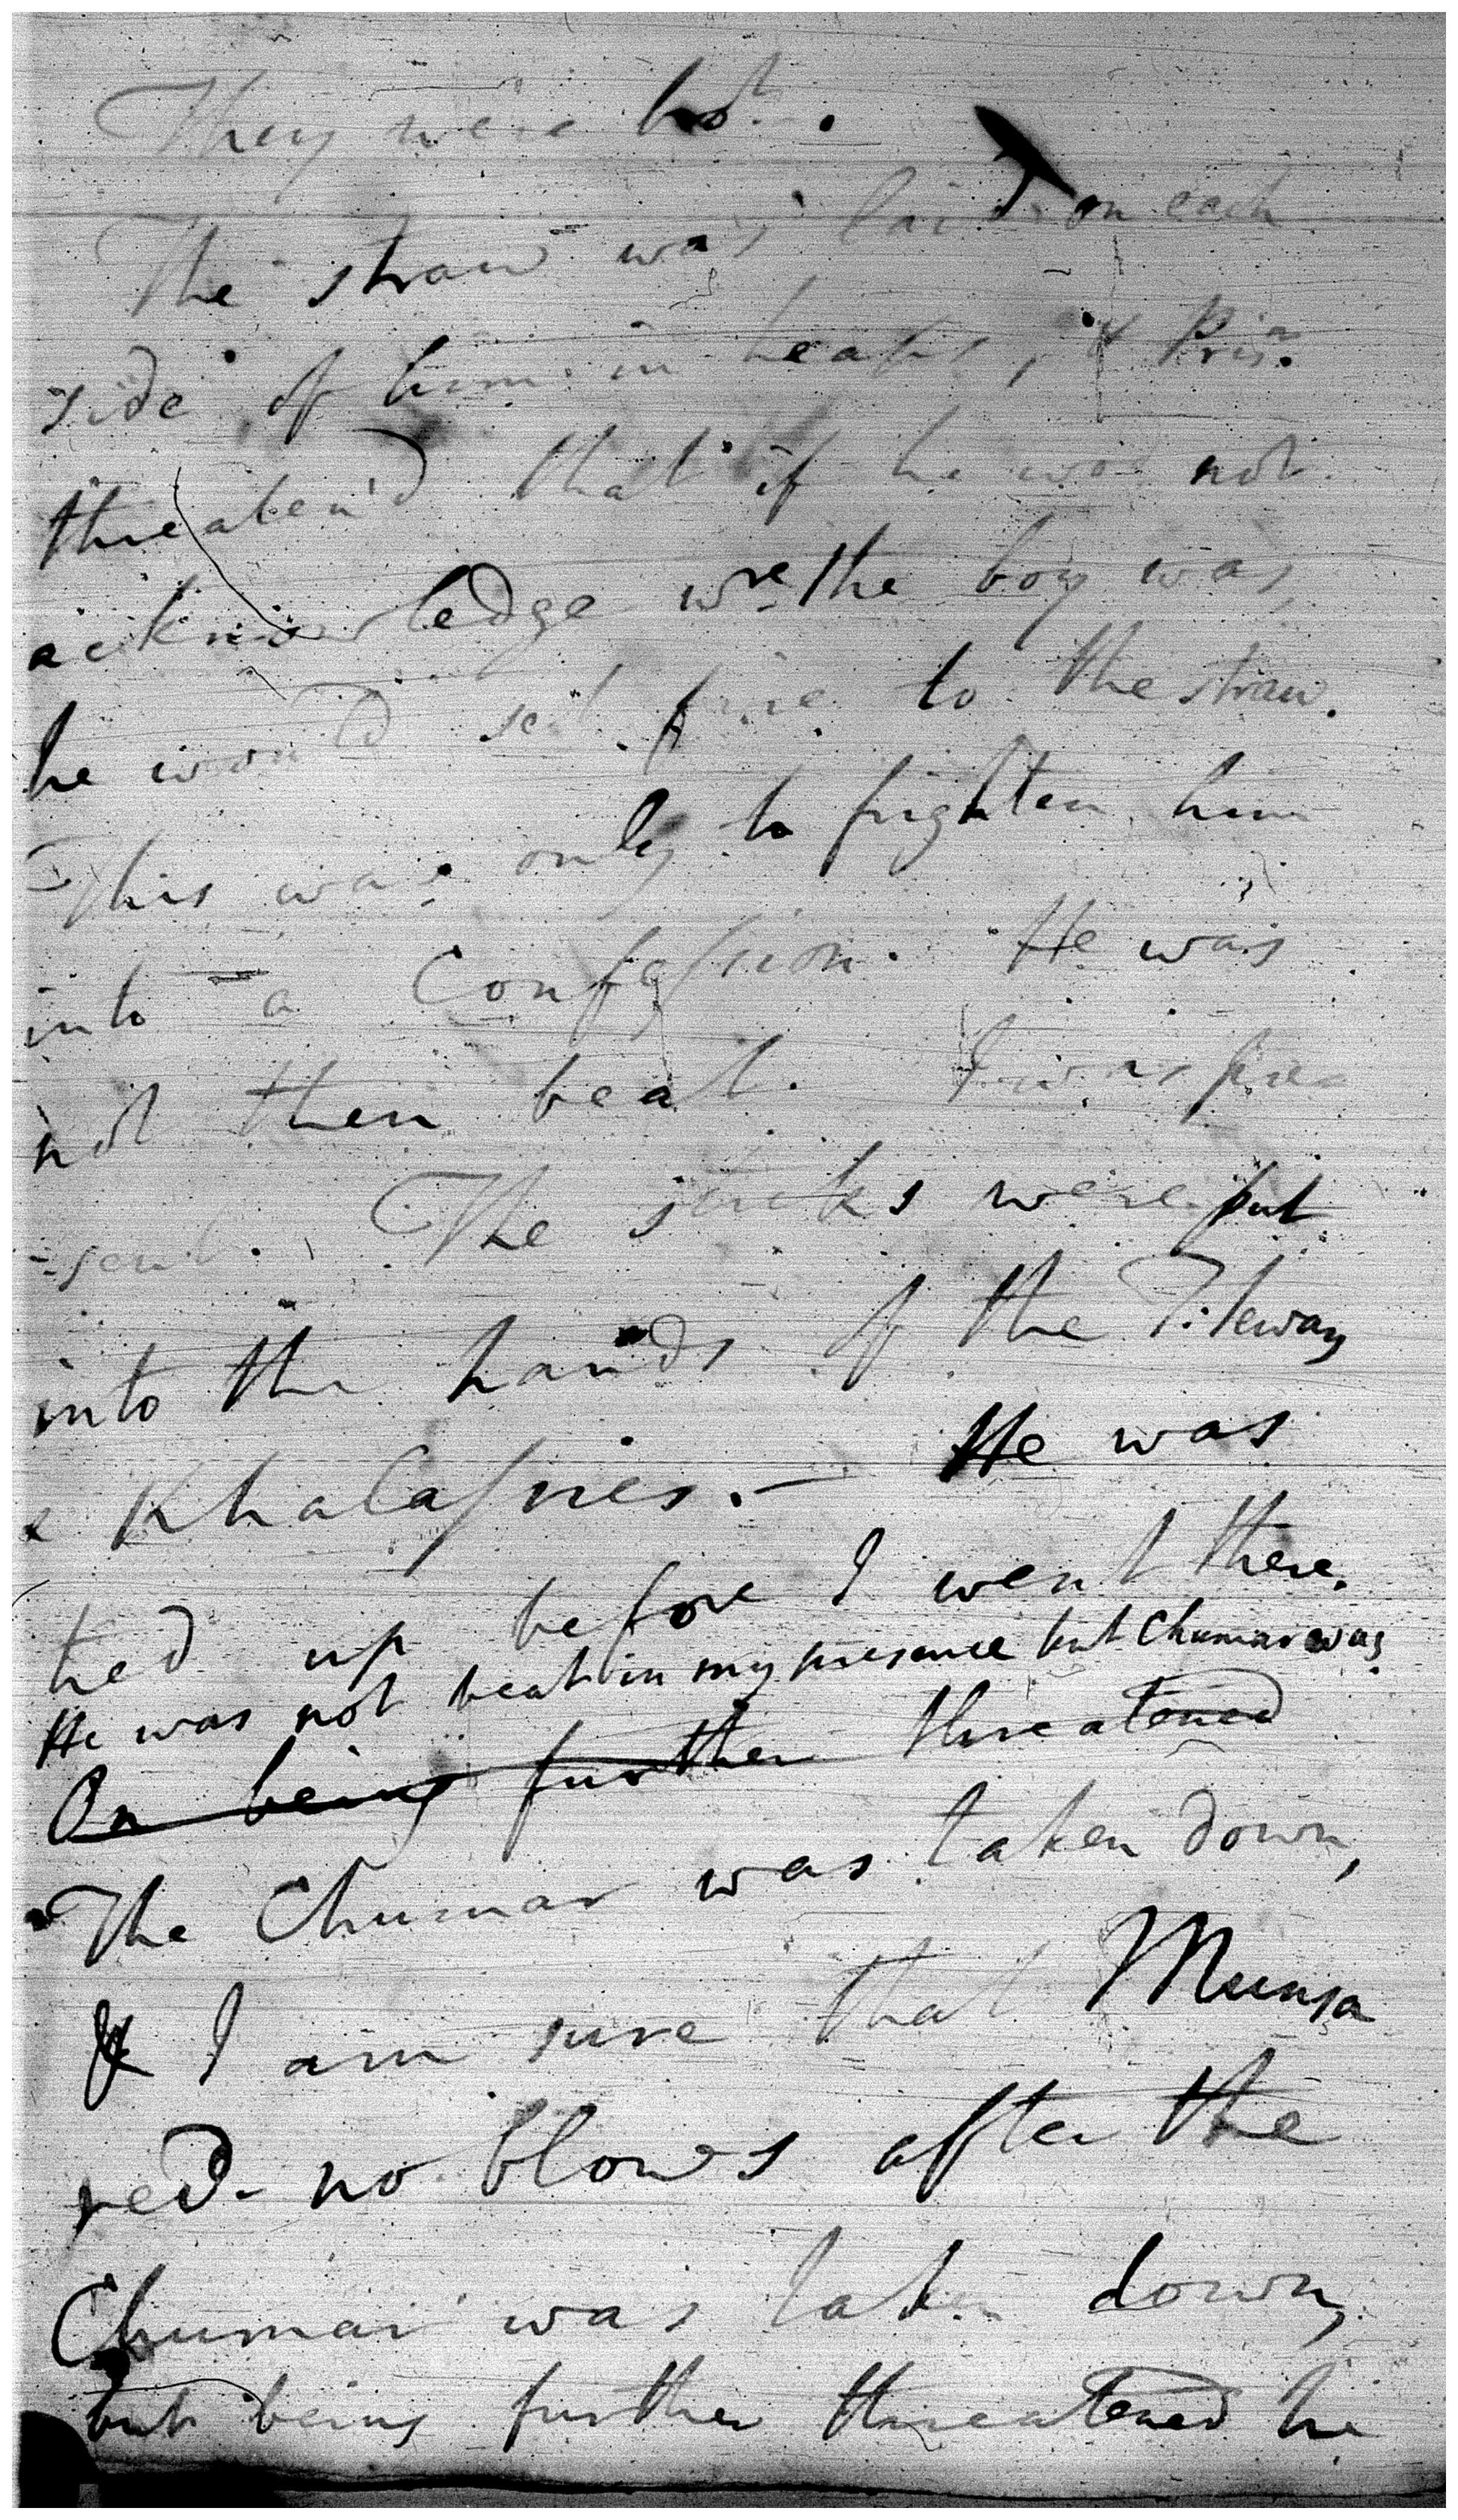 They were hot.
The straw was laid on each
side of him in heaps, & Prisr.
threaten'd that if he wod not
acknowledge wre the boy was,
he would set fire to the straw.
This was only to frighten him
into a Confession. He was
not then beat. I was pre
-sent. The sticks were put
into the hands of the Tileway
& Khalassies. — He was
tied up before I went there.
He was not beat in my presence but Chumar was
On being further threatened
The Chumar was taken down,
& I am sure that Munsa
red no blows after the
Chumar was taken down,
but being further threatened he